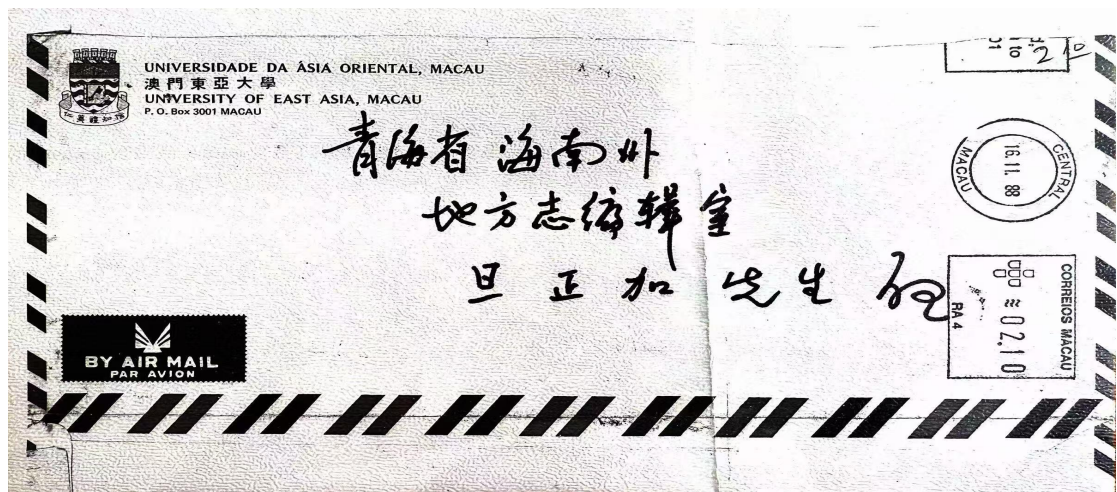 UNIVERSIDADE DA ÁSIA ORIENTAL, MACAU
澳門東亞大學
UNIVERSITY OF EAST ASIA, MACAU
P. O. Box 3001 MACAU
青海省 海南州
地方志编辑室
旦正加 先生 启
BY AIR MAIL
PAR AVION
to
CENTRAL
16.11.88
MACAU
CORREIOS MACAU
≈02.10
RA 4